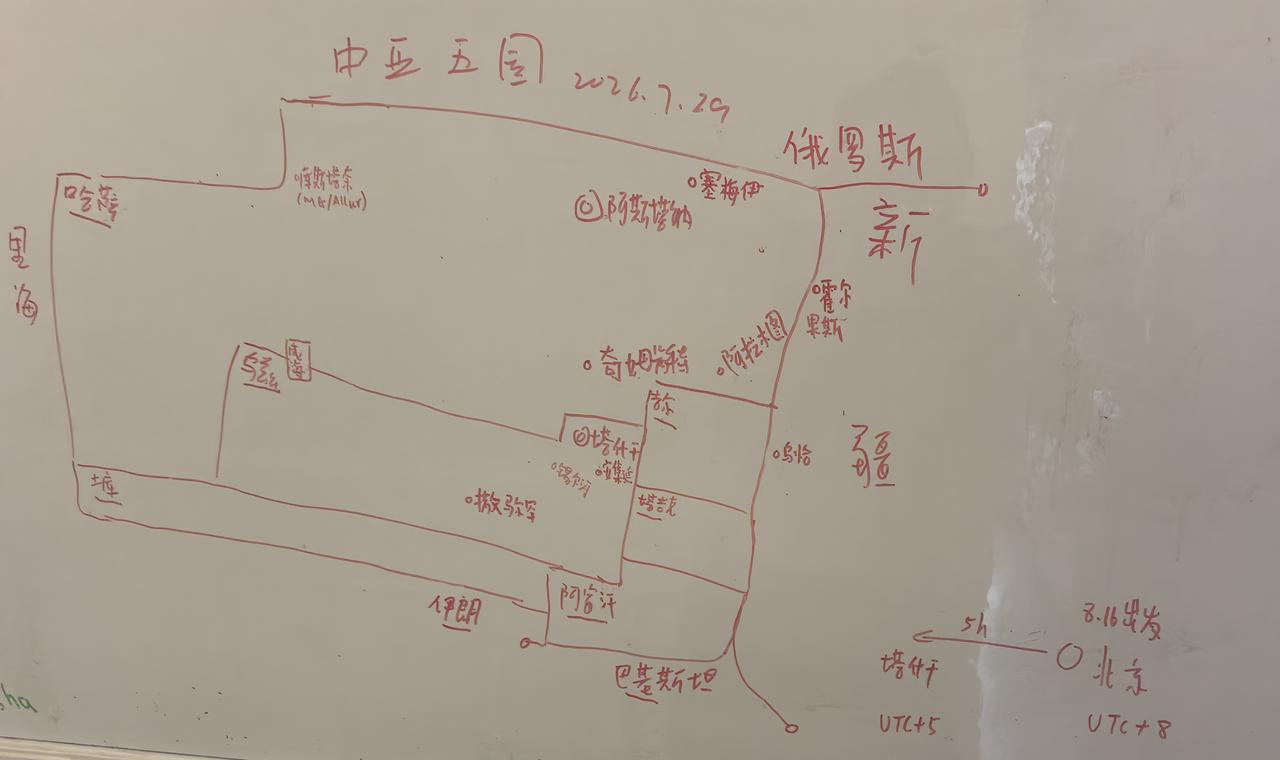 中亚五国 2026.7.29
俄罗斯
塞梅伊
阿斯塔纳
新
库斯塔奈
(MG/Allur)
哈萨
里
海
霍尔
果斯
阿拉木图
奇姆肯特
乌兹
咸海
吉尔
塔什干
安集延
锡尔河
撒马尔罕
乌恰
疆
塔吉克
土库
阿富汗
伊朗
巴基斯坦
8.16出发
5h
塔什干
北京
UTC+5
UTC+8